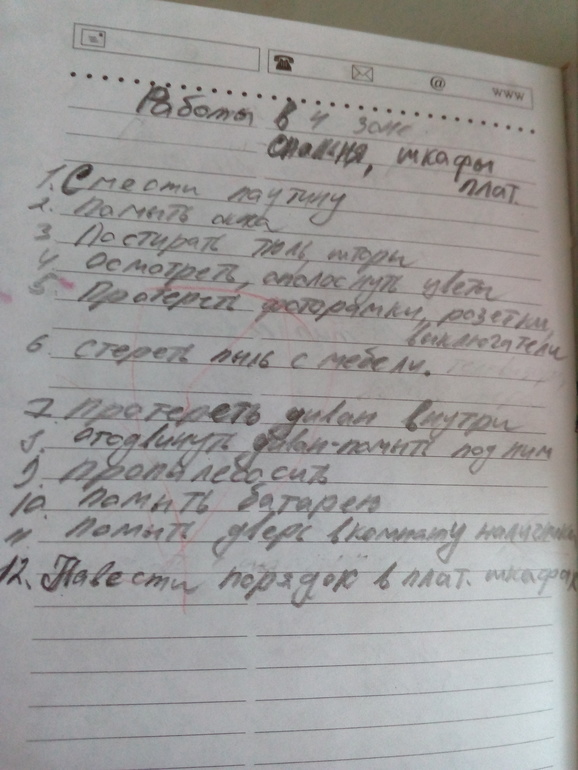 @ www
Работы в 4 зоне
спальня, шкафы
плат.
1. Смести паутину
2. Памыть окна
3 Постирать тюль, шторы
4 Осмотреть, ополоснуть цветы
5. Протереть фоторамки, розетки,
выключатели
6. Стереть пыль с мебели.
7 Протереть диван внутри
8. Отодвинуть диван-помыть под ним
9 Пропылесосить
10. Помыть батарею
11. Помыть дверь в комнату
12. Навести порядок в плат. шкафах